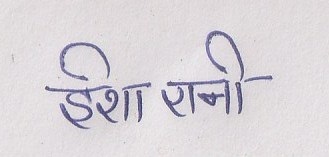 ईशा रानी